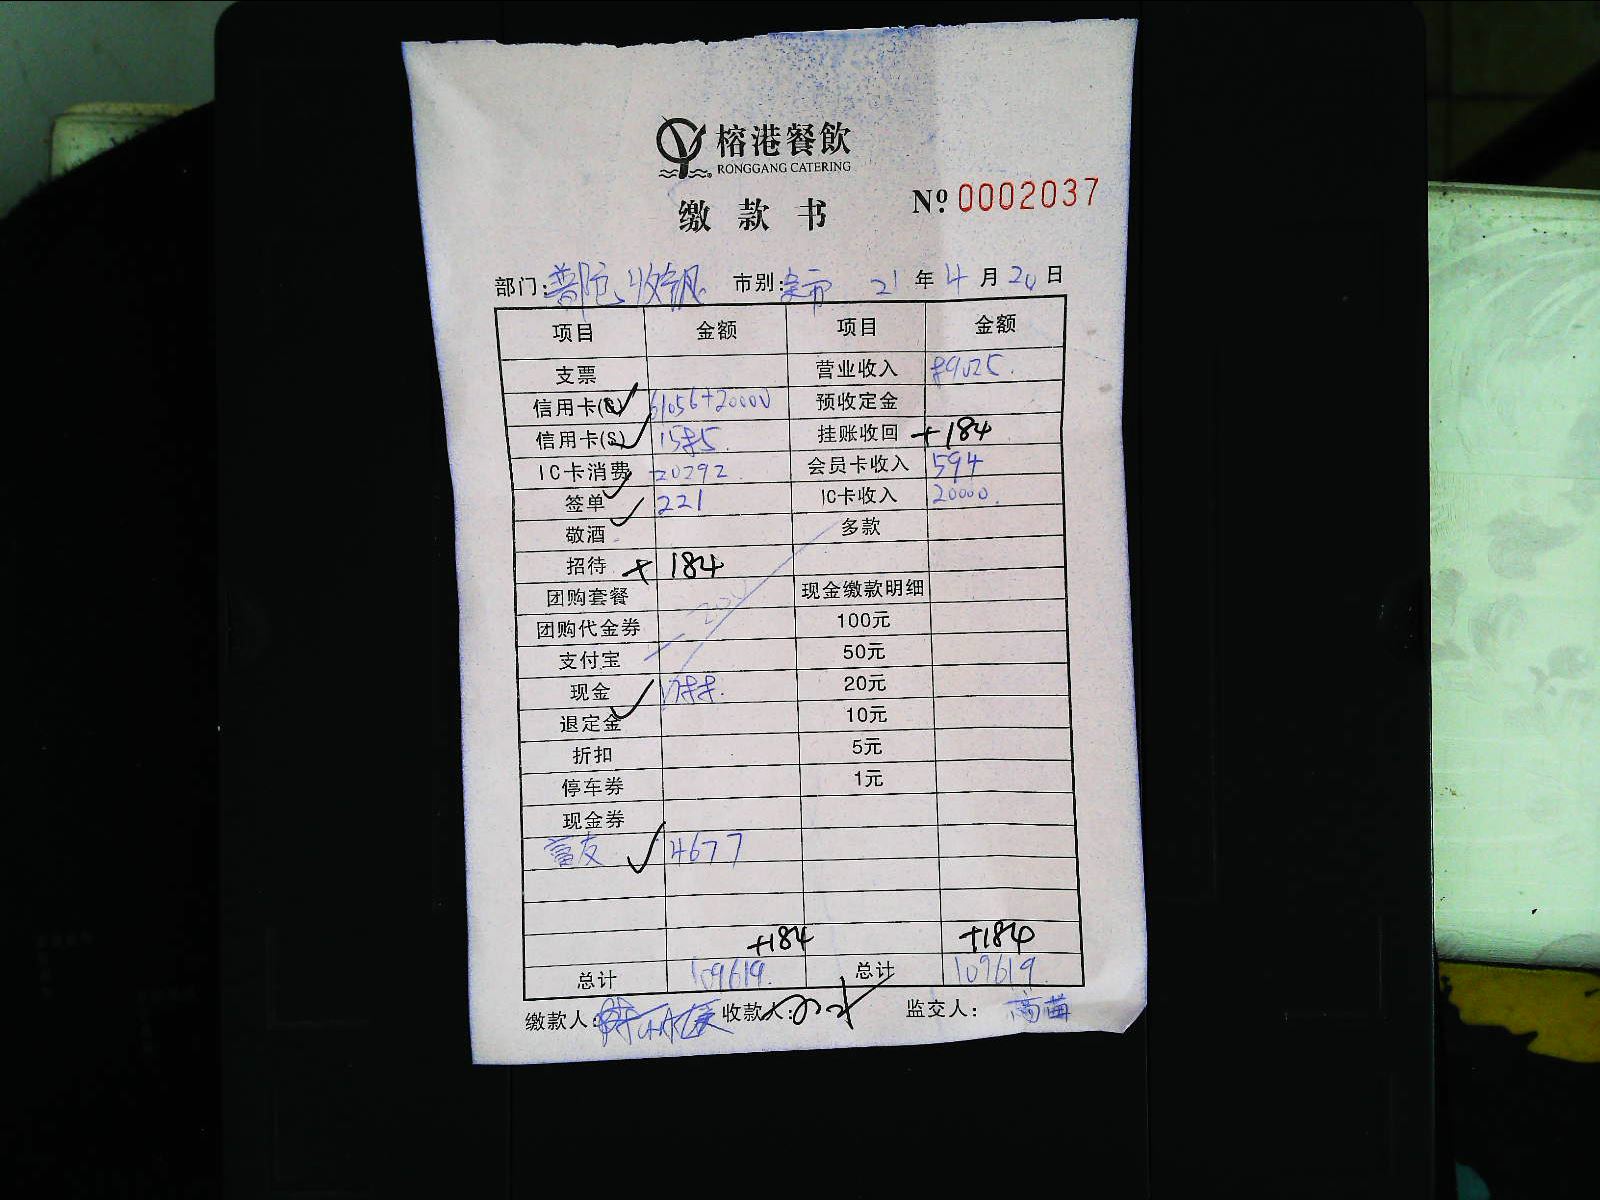 榕港餐飲
RONGGANG CATERING
缴款书
Nº 0002037
部门: 普陀收银 市别: 全市 21年4月20日
项目 金额 项目 金额
支票 营业收入 89025.
信用卡(C) 61056+20000 预收定金
信用卡(S) 1585. 挂账收回 +184
IC卡消费 20292. 会员卡收入 594
签单 221 IC卡收入 20000.
敬酒 多款
招待 + 184
团购套餐 现金缴款明细
团购代金券 100元
支付宝 50元
现金 1788. 20元
退定金 10元
折扣 5元
停车券 1元
现金券
富友 4677
+184 +184
总计 109619. 总计 109619.
缴款人: 收款人: 监交人: 高苗